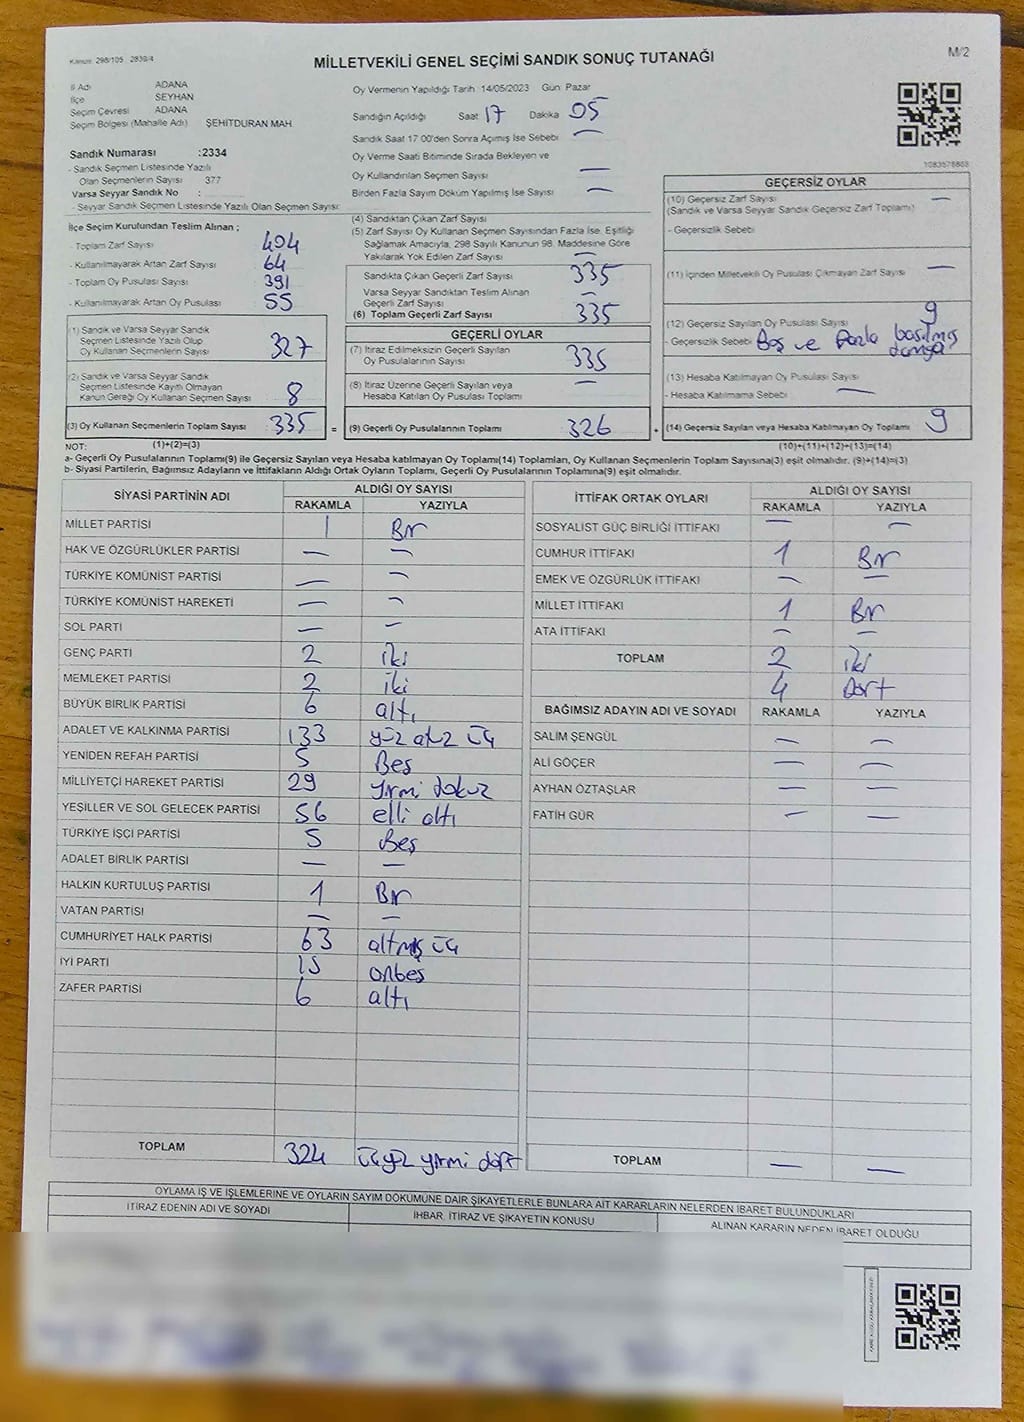 Kanun: 298/105 2839/4
MİLLETVEKİLİ GENEL SEÇİMİ SANDIK SONUÇ TUTANAĞI
M/2
İl Adı ADANA
İlçe SEYHAN
Seçim Çevresi ADANA
Seçim Bölgesi (Mahalle Adı) ŞEHİTDURAN MAH
Sandık Numarası :2334
- Sandık Seçmen Listesinde Yazılı
Olan Seçmenlerin Sayısı 377
Varsa Seyyar Sandık No :
- Seyyar Sandık Seçmen Listesinde Yazılı Olan Seçmen Sayısı:
Oy Vermenin Yapıldığı Tarih 14/05/2023 Gün: Pazar
Sandığın Açıldığı Saat 17 Dakika 05
Sandık Saat 17:00'den Sonra Açılmış İse Sebebi —
Oy Verme Saati Bitiminde Sırada Bekleyen ve
Oy Kullandırılan Seçmen Sayısı —
Birden Fazla Sayım Döküm Yapılmış İse Sayısı —
1083578868
İlçe Seçim Kurulundan Teslim Alınan ;
- Toplam Zarf Sayısı 404
- Kullanılmayarak Artan Zarf Sayısı 64
- Toplam Oy Pusulası Sayısı 391
- Kullanılmayarak Artan Oy Pusulası 55
(1) Sandık ve Varsa Seyyar Sandık
Seçmen Listesinde Yazılı Olup
Oy Kullanan Seçmenlerin Sayısı 327
(2) Sandık ve Varsa Seyyar Sandık
Seçmen Listesinde Kayıtlı Olmayan
Kanun Gereği Oy Kullanan Seçmen Sayısı 8
(3) Oy Kullanan Seçmenlerin Toplam Sayısı 335 =
(4) Sandıktan Çıkan Zarf Sayısı
(5) Zarf Sayısı Oy Kullanan Seçmen Sayısından Fazla İse, Eşitliği
Sağlamak Amacıyla, 298 Sayılı Kanunun 98. Maddesine Göre
Yakılarak Yok Edilen Zarf Sayısı —
Sandıkta Çıkan Geçerli Zarf Sayısı 335
Varsa Seyyar Sandıktan Teslim Alınan
Geçerli Zarf Sayısı —
(6) Toplam Geçerli Zarf Sayısı 335
GEÇERLİ OYLAR
(7) İtiraz Edilmeksizin Geçerli Sayılan
Oy Pusulalarının Sayısı 335
(8) İtiraz Üzerine Geçerli Sayılan veya
Hesaba Katılan Oy Pusulası Toplamı —
(9) Geçerli Oy Pusulalarının Toplamı 326 +
GEÇERSİZ OYLAR
(10) Geçersiz Zarf Sayısı —
(Sandık ve Varsa Seyyar Sandık Geçersiz Zarf Toplamı)
- Geçersizlik Sebebi
(11) İçinden Milletvekili Oy Pusulası Çıkmayan Zarf Sayısı —
(12) Geçersiz Sayılan Oy Pusulası Sayısı 9
- Geçersizlik Sebebi Boş ve fazla basılmış
damga
(13) Hesaba Katılmayan Oy Pusulası Sayısı
- Hesaba Katılmama Sebebi —
(14) Geçersiz Sayılan veya Hesaba Katılmayan Oy Toplamı 9
NOT: (1)+(2)=(3) (10)+(11)+(12)+(13)=(14)
a- Geçerli Oy Pusulalarının Toplamı(9) ile Geçersiz Sayılan veya Hesaba katılmayan Oy Toplamı(14) Toplamları, Oy Kullanan Seçmenlerin Toplam Sayısına(3) eşit olmalıdır. (9)+(14)=(3)
b- Siyasi Partilerin, Bağımsız Adayların ve İttifakların Aldığı Ortak Oyların Toplamı, Geçerli Oy Pusulalarının Toplamına(9) eşit olmalıdır.
SİYASİ PARTİNİN ADI ALDIĞI OY SAYISI
RAKAMLA YAZIYLA
MİLLET PARTİSİ 1 Bir
HAK VE ÖZGÜRLÜKLER PARTİSİ — —
TÜRKİYE KOMÜNİST PARTİSİ — —
TÜRKİYE KOMÜNİST HAREKETİ — —
SOL PARTİ — —
GENÇ PARTİ 2 iki
MEMLEKET PARTİSİ 2 iki
BÜYÜK BİRLİK PARTİSİ 6 altı
ADALET VE KALKINMA PARTİSİ 133 yüz otuz üç
YENİDEN REFAH PARTİSİ 5 Beş
MİLLİYETÇİ HAREKET PARTİSİ 29 yirmi dokuz
YEŞİLLER VE SOL GELECEK PARTİSİ 56 elli altı
TÜRKİYE İŞÇİ PARTİSİ 5 Beş
ADALET BİRLİK PARTİSİ — —
HALKIN KURTULUŞ PARTİSİ 1 Bir
VATAN PARTİSİ — —
CUMHURİYET HALK PARTİSİ 63 altmış üç
İYİ PARTİ 15 onbeş
ZAFER PARTİSİ 6 altı
TOPLAM 324 üçyüz yirmi dört
İTTİFAK ORTAK OYLARI ALDIĞI OY SAYISI
RAKAMLA YAZIYLA
SOSYALİST GÜÇ BİRLİĞİ İTTİFAKI — —
CUMHUR İTTİFAKI 1 Bir
EMEK VE ÖZGÜRLÜK İTTİFAKI — —
MİLLET İTTİFAKI 1 Bir
ATA İTTİFAKI — —
TOPLAM 2 iki
4 Dört
BAĞIMSIZ ADAYIN ADI VE SOYADI RAKAMLA YAZIYLA
SALİM ŞENGÜL — —
ALİ GÖÇER — —
AYHAN ÖZTAŞLAR — —
FATİH GÜR — —
TOPLAM — —
OYLAMA İŞ VE İŞLEMLERİNE VE OYLARIN SAYIM DÖKÜMÜNE DAİR ŞİKAYETLERLE BUNLARA AİT KARARLARIN NELERDEN İBARET BULUNDUKLARI
İTİRAZ EDENİN ADI VE SOYADI İHBAR, İTİRAZ VE ŞİKAYETİN KONUSU ALINAN KARARIN NEDEN İBARET OLDUĞU